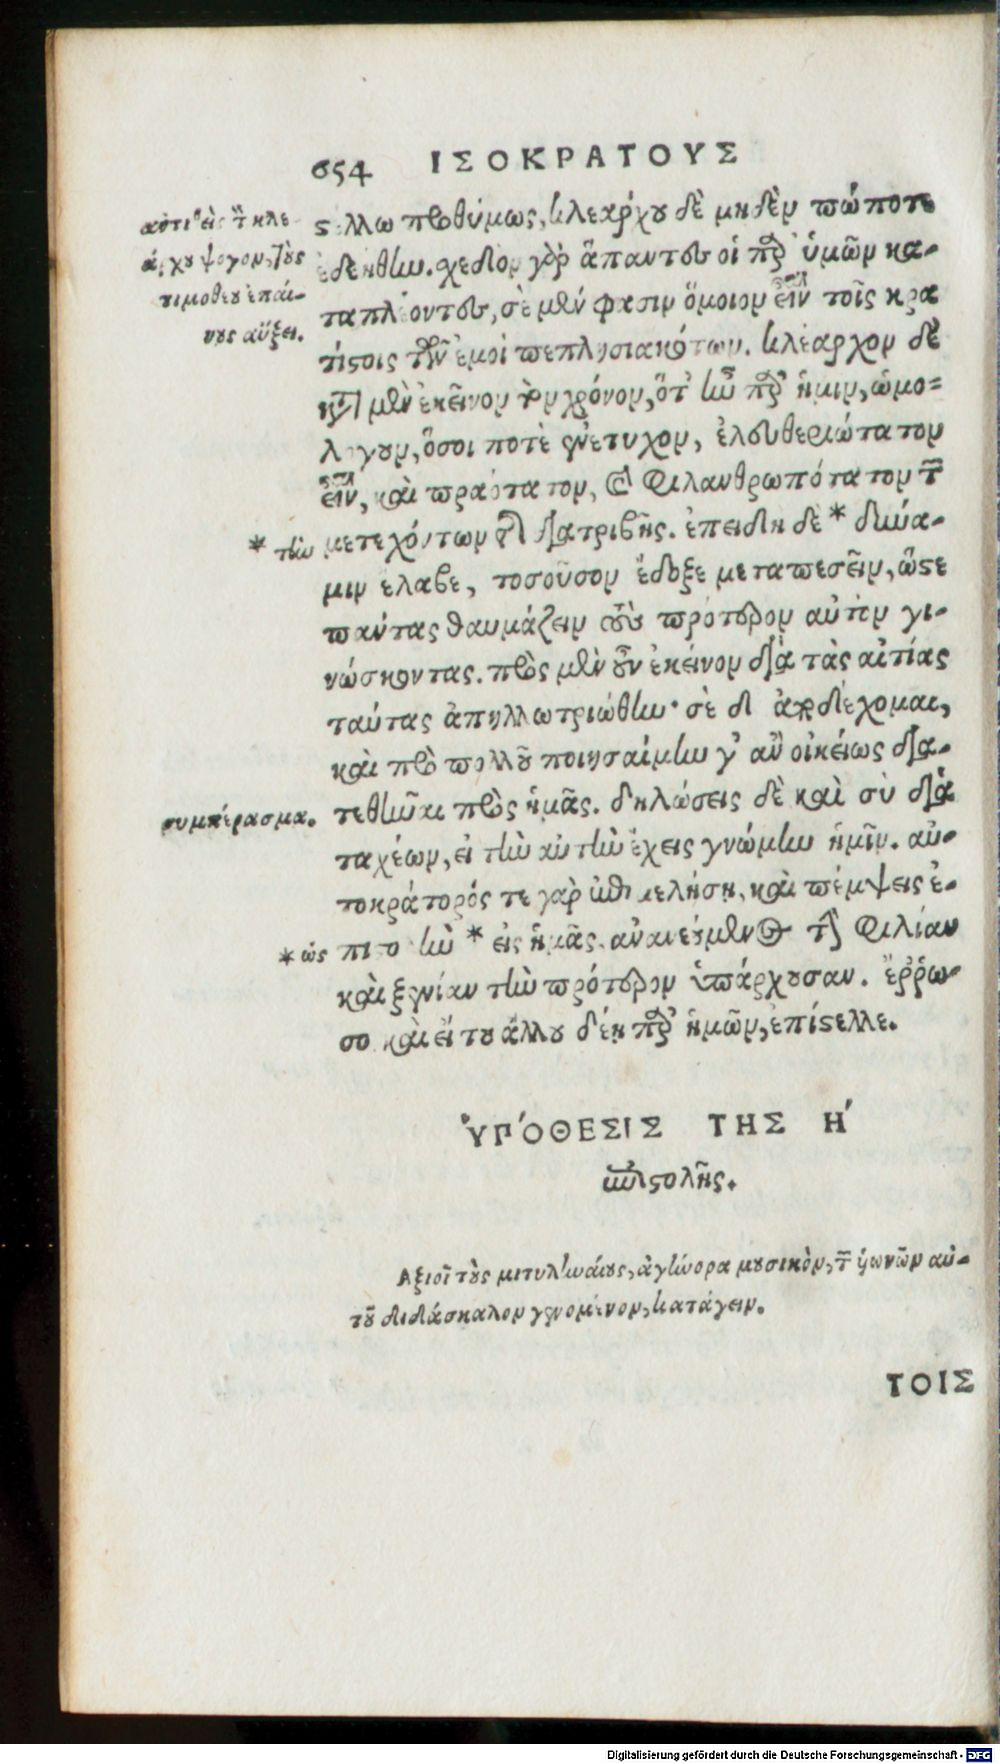 654 ΙΣΟΚΡΑΤΟΥΣ
στέλλω προθύμως, κλεάρχου δὲ μηδὲν πώποτε
ἐδεήθην. σχεδὸν γὰρ ἅπαντες οἱ παρ' ὑμῶν κα-
ταπλέοντες, σὲ μὲν φασιν ὅμοιον εἶναι τοῖς κρα
τίστοις τῶν ἐμοὶ πεπλησιακότων. κλέαρχον δὲ
κατὰ μὲν ἐκεῖνον τὸν χρόνον, ὅτ' ἦν παρ' ἡμῖν, ὡμο-
λόγουν, ὅσοι ποτὲ ἐνέτυχον, ἐλευθεριώτατον
εἶναι, καὶ πραότατον, καὶ φιλανθρωπότατον τῶν
μετεχόντων τῆς διατριβῆς. ἐπειδὴ δὲ * δύνα-
μιν ἔλαβε, τοσοῦτον ἔδοξε μεταπεσεῖν, ὥστε
πάντας θαυμάζειν τοὺς πρότερον αὐτὸν γι-
νώσκοντας. πρὸς μὲν οὖν ἐκεῖνον διὰ τὰς αἰτίας
ταύτας ἀπηλλωτριώθην· σὲ δ' ἀποδέχομαι,
καὶ πρὸ πολλοῦ ποιησαίμην γ' ἂν οἰκείως δια-
τεθῆναι πρὸς ἡμᾶς. δηλώσεις δὲ καὶ σὺ διὰ
ταχέων, εἰ τὴν αὐτὴν ἔχεις γνώμην ἡμῖν. αὐ-
τοκράτορός τε γὰρ ἐπιμελήσῃ, καὶ πέμψεις ἐ-
πιστολὴν * εἰς ἡμᾶς. ἀνανεούμενος τὴν φιλίαν
καὶ ξενίαν τὴν πρότερον ὑπάρχουσαν. ἔρρω-
σο καὶ εἴ του ἄλλου δέῃ παρ' ἡμῶν, ἐπίστελλε.
τιμοθέου ἐπαί-
νους αὔξει.
* τὴν
συμπέρασμα.
* ὡς
ὙΠΌΘΕΣΙΣ ΤΗΣ Η΄
ἐπιστολῆς.
Ἀξιοῖ τοὺς μιτυληναίους, ἀγήνορα μουσικὸν, τῶν ὑωνῶν αὐ-
τοῦ διδάσκαλον γενόμενον, κατάγειν.
ΤΟΙΣ
Digitalisierung gefördert durch die Deutsche Forschungsgemeinschaft - DFG